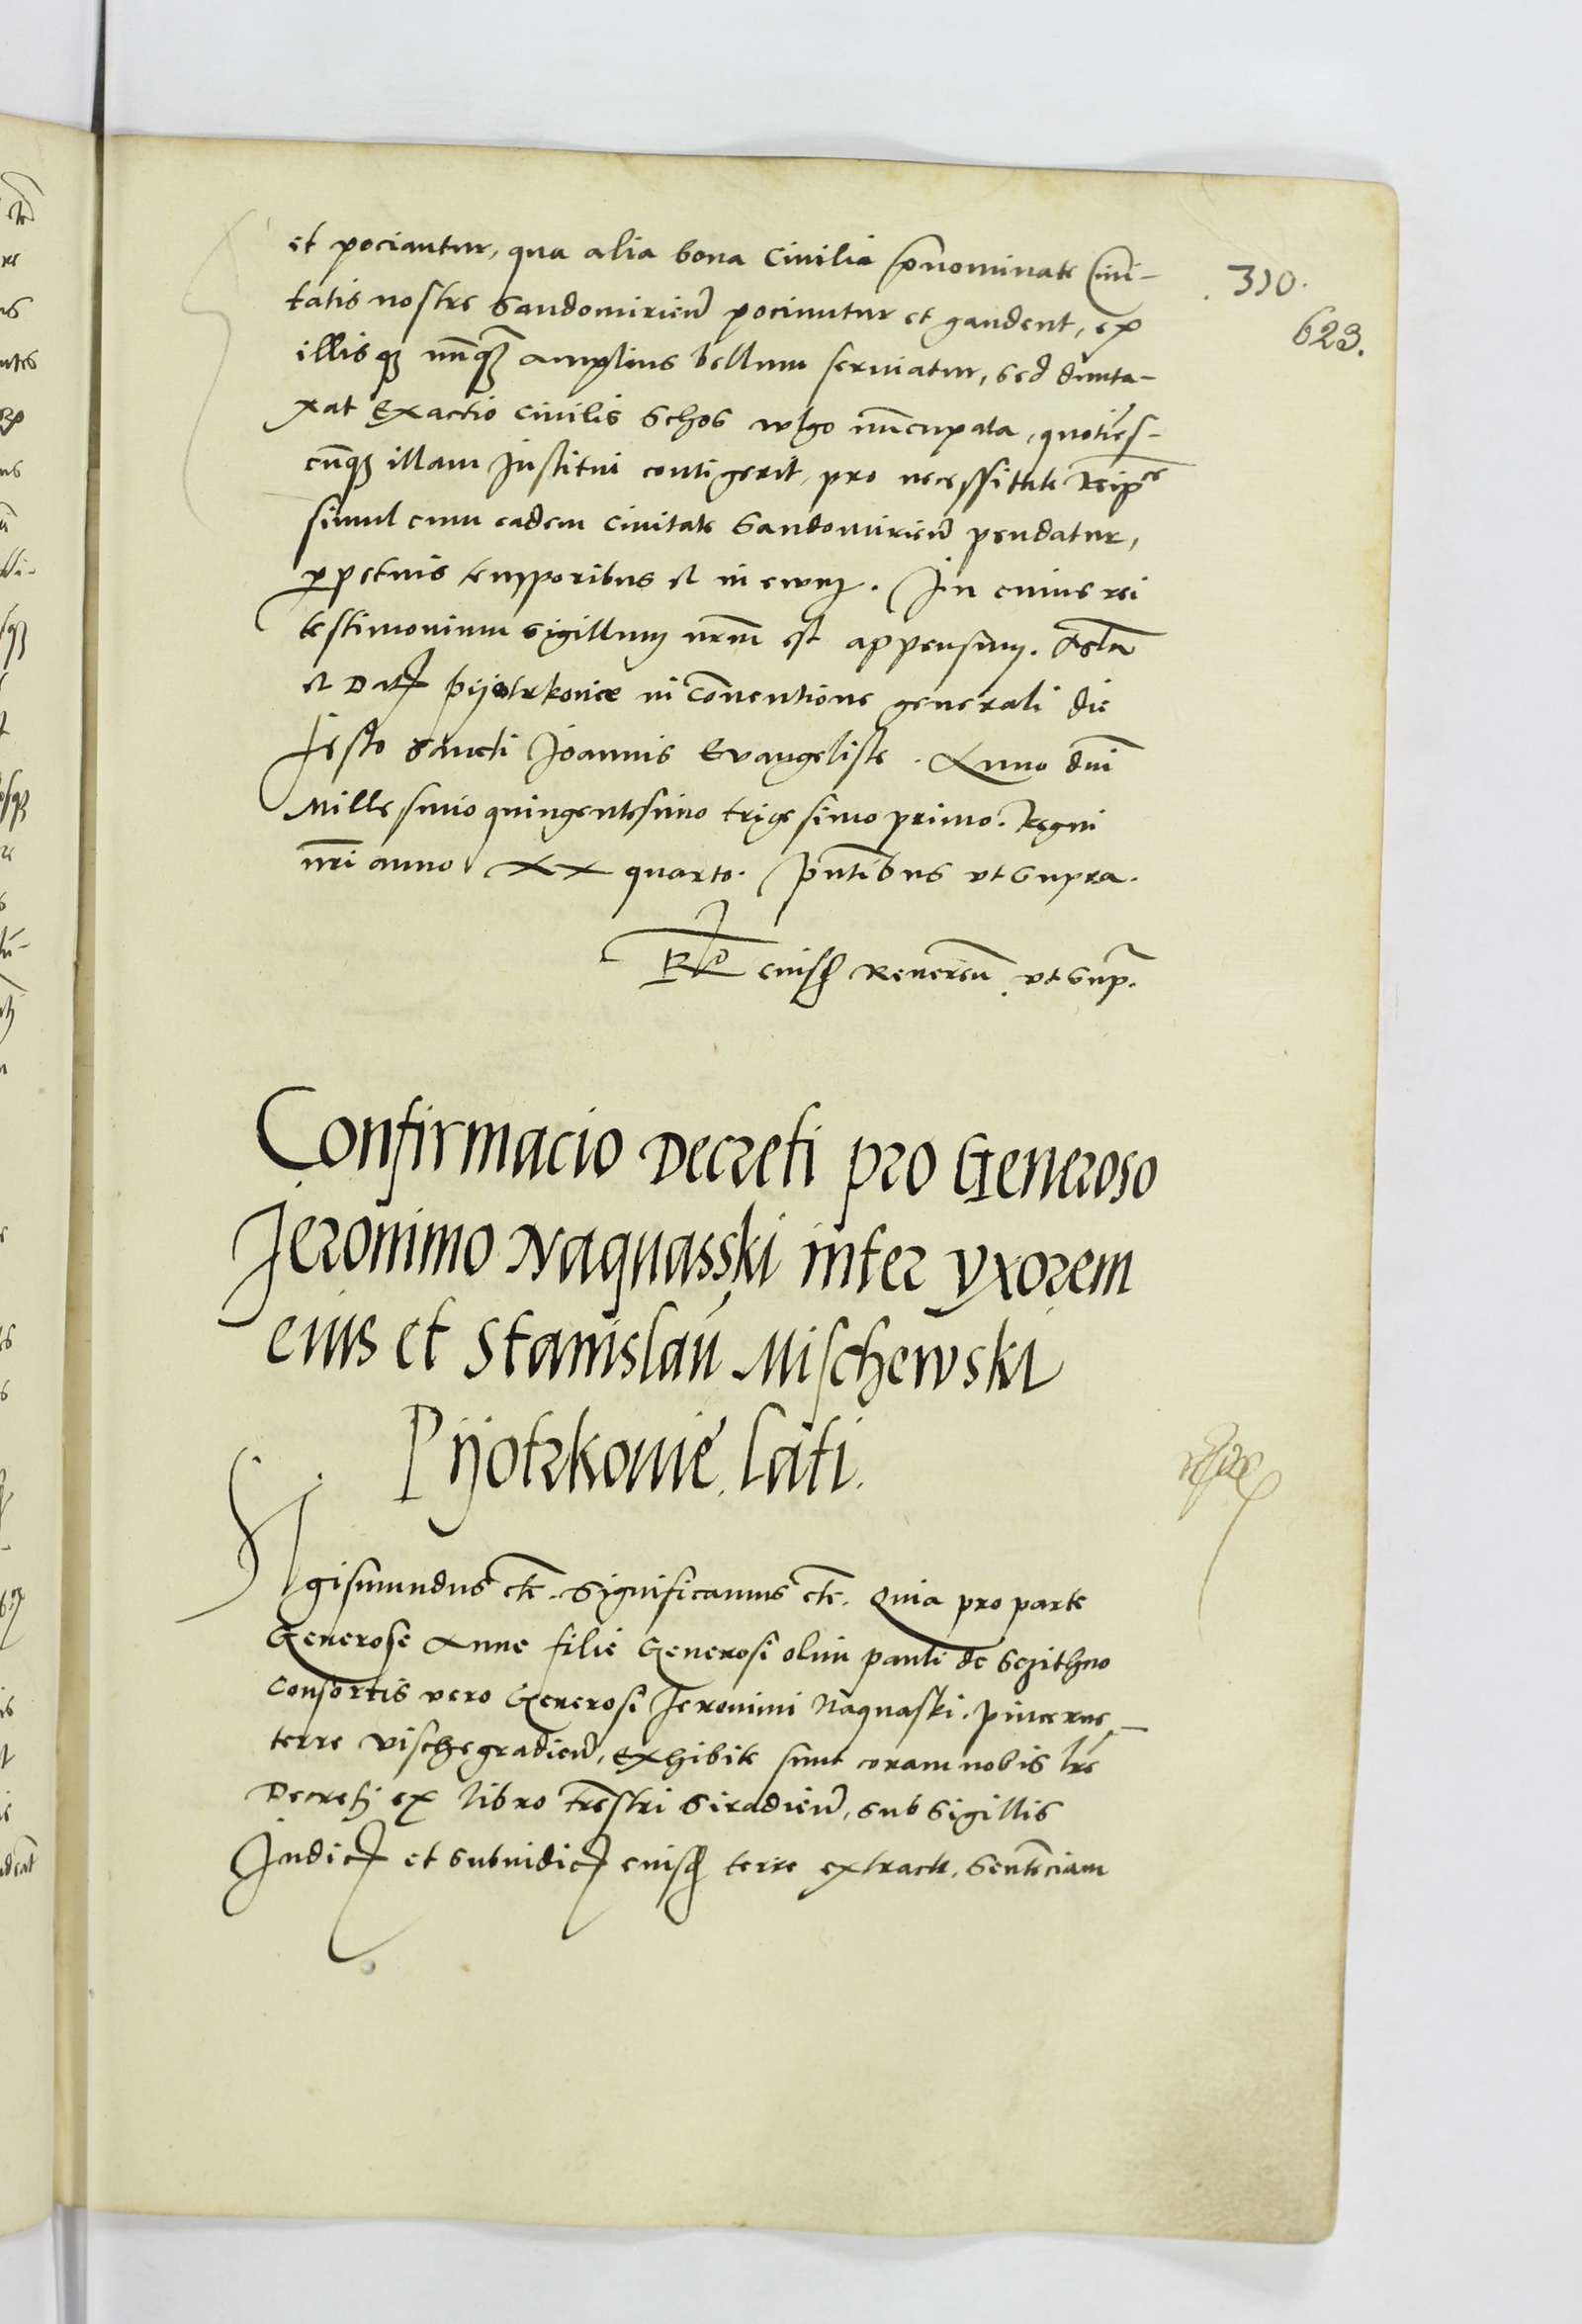 et pociantur, qua alia bona Ciuilia p̄nominate Ciui-
310.
tatis nostre Sandomirieñ pociuntur et gaudent, ex
623.
illisq3 nūq3 amplius bellum seruiatur, sed dunta-
xat Exactio ciuilis Schos wlgo nūcupata, quoties-
cūq3 illam Institui contigerit, pro necessitate Reipce
simul cum eadem Ciuitate Sandomirieñ pendatur,
ꝑpetuis temporibus et in ewm. In cuius rei
testimonium sigillum nrm̄ est appensum. Actu
et Dat Pijotrkouie in Conuentione generali die
festo Sancti Joannis Euangeliste. Anno dnī
Millesimo quingentesimo trigesimo primo. Regni
nrī anno XX quarto. Pn̄tibus vt Supra.
Rō eiusd Reuereñ vt Sup.
Confirmacio Decreti pro Generoso
Jeronimo Naquasski inter vxorem
eius et Stanislaū Mischewski
Pijotrkouie lati.
Sigismundus etc̄. Significamus etc̄. Quia pro parte
Generose Anne filie Generosi olim Pauli de Sczithno
Consortis vero Generosi Jeronimi Naquaski. Pincerne
terre Vischegradieñ, Exhibite sunt coram nobis lrē
Decretj ex libro trēstri Siradieñ, sub Sigillis
Judic et Subiudic eiusd terre extracte, Sentēciam